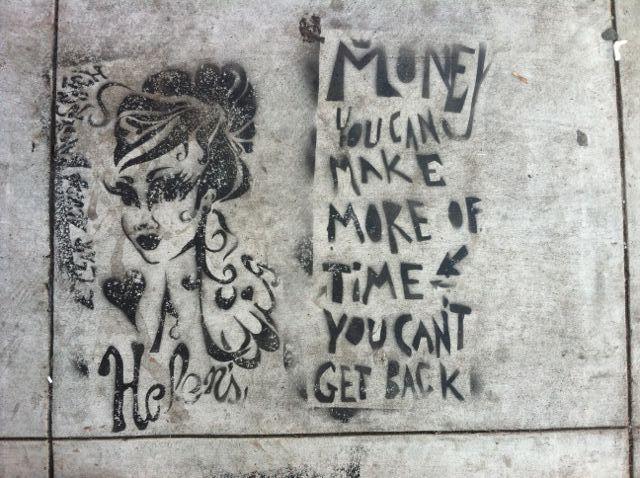 Helen's
MONEY
YOU CAN
MAKE
MORE OF
TiME
YOU CAN'T
GET BACK